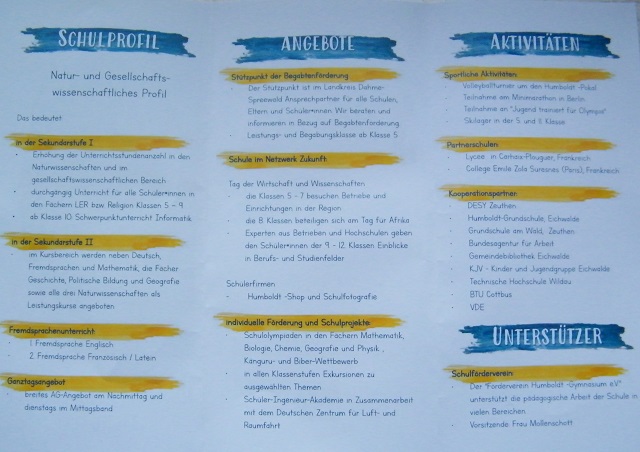 SCHULPROFIL
Natur- und Gesellschafts-
wissenschaftliches Profil
Das bedeutet
in der Sekundarstufe I
• Erhöhung der Unterrichtsstundenanzahl in den
Naturwissenschaften und im
gesellschaftswissenschaftlichen Bereich
• durchgängig Unterricht für alle Schüler*innen in
den Fächern LER bzw. Religion Klassen 5 - 9
• ab Klasse 10 Schwerpunktunterricht Informatik
in der Sekundarstufe II
• im Kursbereich werden neben Deutsch,
Fremdsprachen und Mathematik, die Fächer
Geschichte, Politische Bildung und Geografie
sowie alle drei Naturwissenschaften als
Leistungskurse angeboten
Fremdsprachenunterricht
• 1. Fremdsprache Englisch
• 2. Fremdsprache Französisch / Latein
Ganztagsangebot
• breites AG-Angebot am Nachmittag und
dienstags im Mittagsband
ANGEBOTE
Stützpunkt der Begabtenförderung
• Der Stützpunkt ist im Landkreis Dahme-
Spreewald Ansprechpartner für alle Schulen,
Eltern und Schüler*innen. Wir beraten und
informieren in Bezug auf Begabtenförderung.
• Leistungs- und Begabungsklasse ab Klasse 5
Schule im Netzwerk Zukunft
Tag der Wirtschaft und Wissenschaften
• die Klassen 5 - 7 besuchen Betriebe und
Einrichtungen in der Region
• die 8. Klassen beteiligen sich am Tag für Afrika
• Experten aus Betrieben und Hochschulen geben
den Schüler*innen der 9. - 12. Klassen Einblicke
in Berufs- und Studienfelder
Schülerfirmen
• Humboldt -Shop und Schulfotografie
individuelle Förderung und Schulprojekte
• Schulolympiaden in den Fächern Mathematik,
Biologie, Chemie, Geografie und Physik ,
Känguru- und Biber-Wettbewerb
• in allen Klassenstufen Exkursionen zu
ausgewählten Themen
• Schüler-Ingenieur-Akademie in Zusammenarbeit
mit dem Deutschen Zentrum für Luft- und
Raumfahrt
AKTIVITÄTEN
Sportliche Aktivitäten
• Volleyballturnier um den Humboldt -Pokal
• Teilnahme am Minimarathon in Berlin
• Teilnahme an "Jugend trainiert für Olympia"
• Skilager in der 5. und 11. Klasse
Partnerschulen
• Lycee in Carhaix-Plouguer, Frankreich
• College Emile Zola Suresnes (Paris), Frankreich
Kooperationspartner
• DESY Zeuthen
• Humboldt-Grundschule, Eichwalde
• Grundschule am Wald, Zeuthen
• Bundesagentur für Arbeit
• Gemeindebibliothek Eichwalde
• KJV - Kinder und Jugendgruppe Eichwalde
• Technische Hochschule Wildau
• BTU Cottbus
• VDE
UNTERSTÜTZER
Schulförderverein
• Der "Förderverein Humboldt -Gymnasium e.V"
unterstützt die pädagogische Arbeit der Schule in
vielen Bereichen
• Vorsitzende Frau Mollenschott